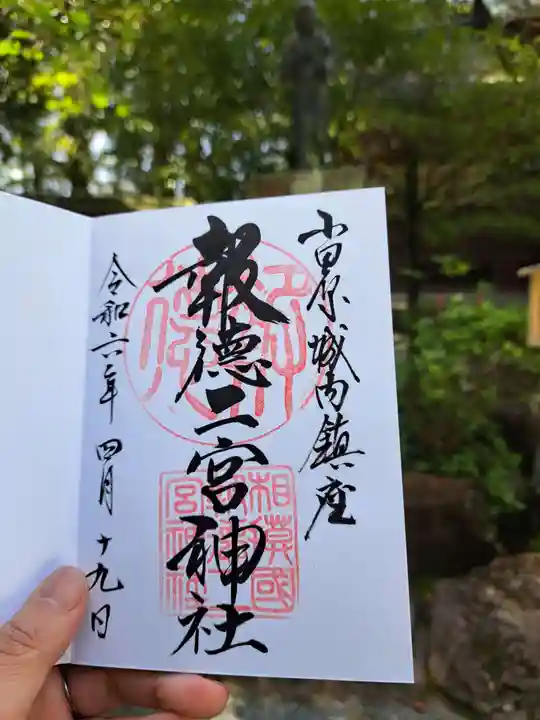 小田原城内鎮座
報徳二宮神社
令和六年 四月 十九日
相模國
宮神社